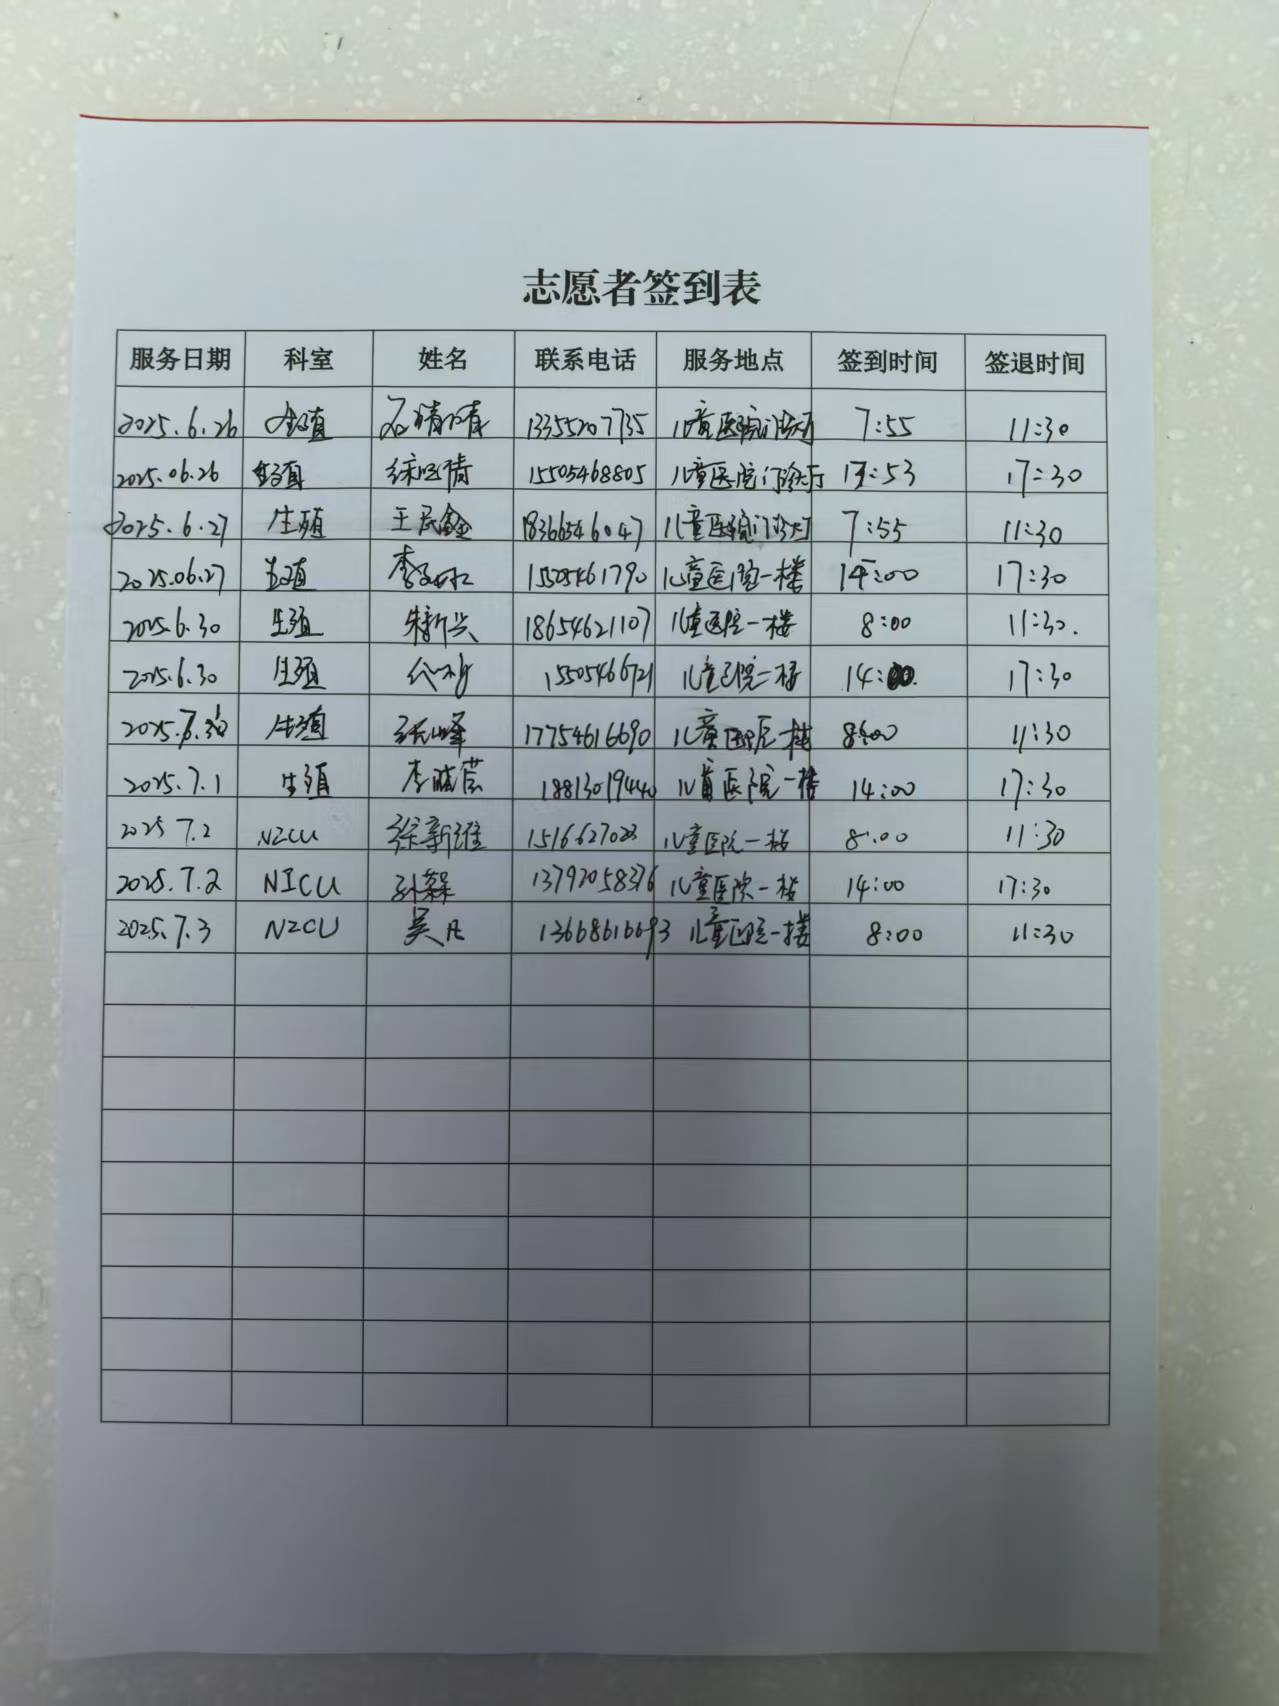 志愿者签到表
服务日期 科室 姓名 联系电话 服务地点 签到时间 签退时间
2025.6.26 生殖 石晴晴 13355207735 儿童医院门诊大厅 7:55 11:30
2025.06.26 生殖 15505468805 儿童医院门诊大厅 13:53 17:30
2025.6.27 生殖 18366546047 儿童医院门诊大厅 7:55 11:30
2025.06.27 生殖 15505461790 儿童医院一楼 14:00 17:30
2025.6.30 生殖 朱新兴 18654621107 儿童医院一楼 8:00 11:30.
2025.6.30 生殖 15505466721 儿童医院一楼 14:00. 17:30
生殖 17754616690 儿童医院一楼 8:00 11:30
2025.7.1 生殖 18813019440 儿童医院一楼 14:00 17:30
2025 7.2 NICU 徐新维 儿童医院一楼 8:00 11:30
2025.7.2 NICU 13792058376 儿童医院一楼 14:00 17:30
2025.7.3 NICU 吴凡 13668616693 儿童医院一楼 8:00 11:30